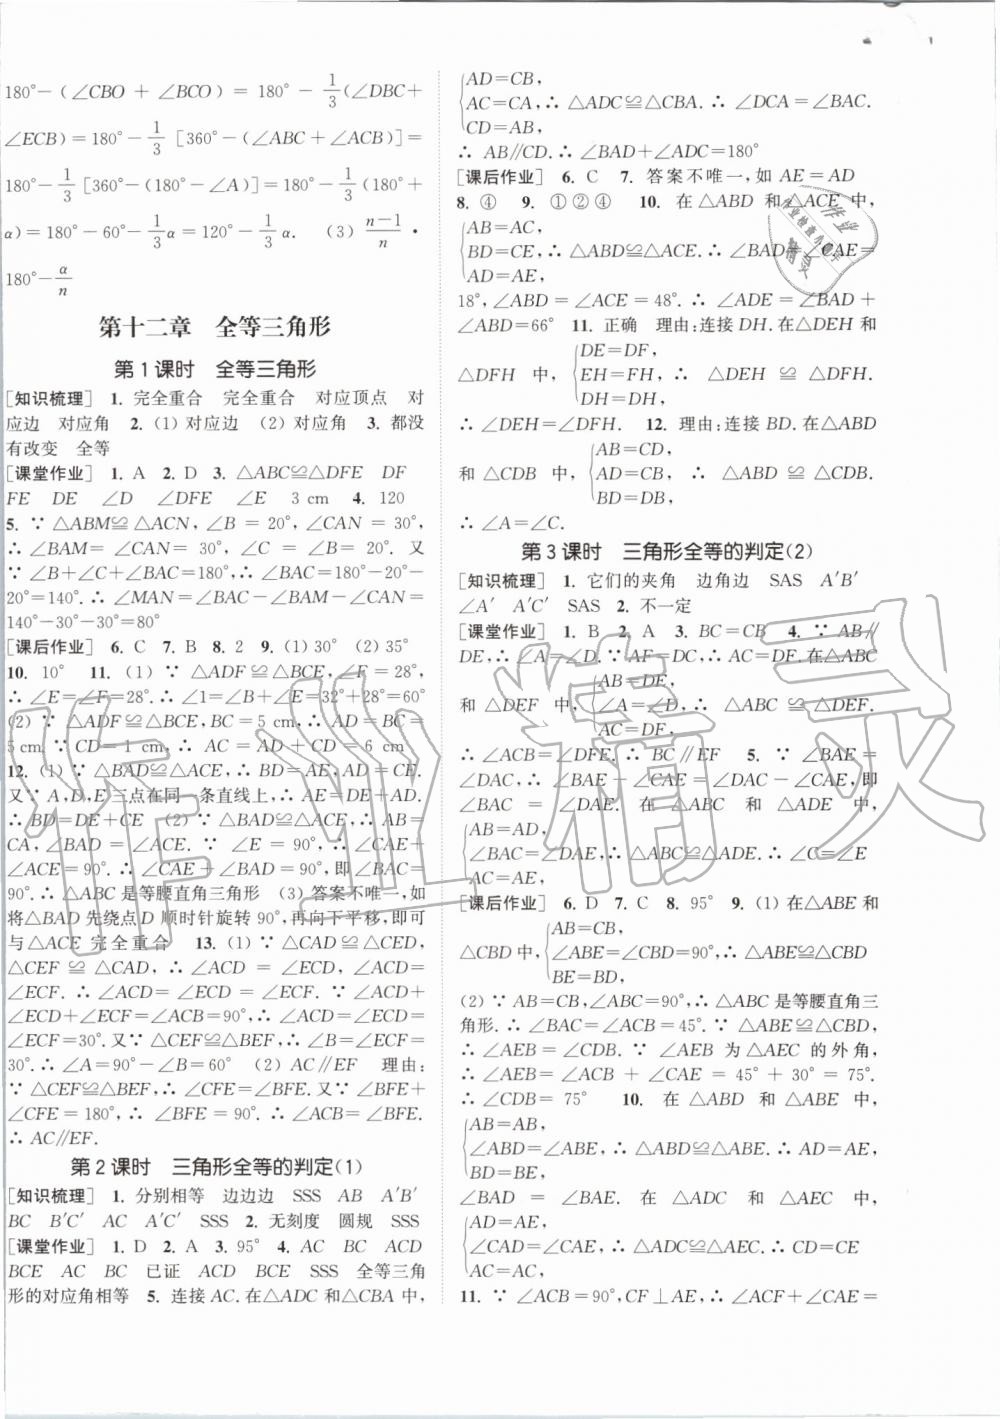 180°－(∠CBO＋∠BCO)＝180°－1/3(∠DBC＋
∠ECB)＝180°－1/3[360°－(∠ABC＋∠ACB)]＝
180°－1/3[360°－(180°－∠A)]＝180°－1/3(180°＋
α)＝180°－60°－1/3α＝120°－1/3α. (3) n－1/n •
180°－α/n
第十二章 全等三角形
第1课时 全等三角形
[知识梳理] 1. 完全重合 完全重合 对应顶点 对
应边 对应角 2. (1) 对应边 (2) 对应角 3. 都没
有改变 全等
[课堂作业] 1. A 2. D 3. △ABC≌△DFE DF
FE DE ∠D ∠DFE ∠E 3 cm 4. 120
5. ∵ △ABM≌△ACN,∠B＝20°,∠CAN＝30°,
∴ ∠BAM＝∠CAN＝30°,∠C＝∠B＝20°. 又
∵ ∠B＋∠C＋∠BAC＝180°,∴ ∠BAC＝180°－20°－
20°＝140°. ∴ ∠MAN＝∠BAC－∠BAM－∠CAN＝
140°－30°－30°＝80°
[课后作业] 6. C 7. B 8. 2 9. (1) 30° (2) 35°
10. 10° 11. (1) ∵ △ADF≌△BCE,∠F＝28°,
∴ ∠E＝∠F＝28°. ∴ ∠1＝∠B＋∠E＝32°＋28°＝60°
(2) ∵ △ADF≌△BCE,BC＝5 cm,∴ AD＝BC＝
5 cm. ∵ CD＝1 cm,∴ AC＝AD＋CD＝6 cm
12. (1) ∵ △BAD≌△ACE,∴ BD＝AE,AD＝CE.
又∵ A,D,E三点在同一条直线上,∴ AE＝DE＋AD.
∴ BD＝DE＋CE (2) ∵ △BAD≌△ACE,∴ AB＝
CA,∠BAD＝∠ACE. ∵ ∠E＝90°,∴ ∠CAE＋
∠ACE＝90°. ∴ ∠CAE＋∠BAD＝90°,即∠BAC＝
90°. ∴ △ABC是等腰直角三角形 (3) 答案不唯一,如
将△BAD先绕点D顺时针旋转90°,再向下平移,即可
与△ACE完全重合 13. (1) ∵ △CAD≌△CED,
△CEF≌△CAD,∴ ∠ACD＝∠ECD,∠ACD＝
∠ECF. ∴ ∠ACD＝∠ECD＝∠ECF. ∵ ∠ACD＋
∠ECD＋∠ECF＝∠ACB＝90°,∴ ∠ACD＝∠ECD＝
∠ECF＝30°. 又∵ △CEF≌△BEF,∴ ∠B＝∠ECF＝
30°. ∴ ∠A＝90°－∠B＝60° (2) AC∥EF 理由:
∵ △CEF≌△BEF,∴ ∠CFE＝∠BFE. 又∵ ∠BFE＋
∠CFE＝180°,∴ ∠BFE＝90°. ∴ ∠ACB＝∠BFE.
∴ AC∥EF.
第2课时 三角形全等的判定(1)
[知识梳理] 1. 分别相等 边边边 SSS AB A′B′
BC B′C′ AC A′C′ SSS 2. 无刻度 圆规 SSS
[课堂作业] 1. D 2. A 3. 95° 4. AC BC ACD
BCE AC BC 已证 ACD BCE SSS 全等三角
形的对应角相等 5. 连接AC. 在△ADC和△CBA中,
AD＝CB,
AC＝CA,∴ △ADC≌△CBA. ∴ ∠DCA＝∠BAC.
CD＝AB,
∴ AB∥CD. ∴ ∠BAD＋∠ADC＝180°
[课后作业] 6. C 7. 答案不唯一,如AE＝AD
8. ④ 9. ①②④ 10. 在△ABD和△ACE中,
AB＝AC,
BD＝CE,∴ △ABD≌△ACE. ∴ ∠BAD＝∠CAE＝
AD＝AE,
18°,∠ABD＝∠ACE＝48°. ∴ ∠ADE＝∠BAD＋
∠ABD＝66° 11. 正确 理由:连接DH. 在△DEH和
DE＝DF,
△DFH中, EH＝FH,∴ △DEH≌△DFH.
DH＝DH,
∴ ∠DEH＝∠DFH. 12. 理由:连接BD. 在△ABD
AB＝CD,
和△CDB中, AD＝CB,∴ △ABD≌△CDB.
BD＝DB,
∴ ∠A＝∠C.
第3课时 三角形全等的判定(2)
[知识梳理] 1. 它们的夹角 边角边 SAS A′B′
∠A′ A′C′ SAS 2. 不一定
[课堂作业] 1. B 2. A 3. BC＝CB 4. ∵ AB∥
DE,∴ ∠A＝∠D. ∵ AF＝DC,∴ AC＝DF. 在△ABC
AB＝DE,
和△DEF中, ∠A＝∠D,∴ △ABC≌△DEF.
AC＝DF,
∴ ∠ACB＝∠DFE. ∴ BC∥EF 5. ∵ ∠BAE＝
∠DAC,∴ ∠BAE－∠CAE＝∠DAC－∠CAE,即
∠BAC＝∠DAE. 在△ABC和△ADE中,
AB＝AD,
∠BAC＝∠DAE,∴ △ABC≌△ADE. ∴ ∠C＝∠E
AC＝AE,
[课后作业] 6. D 7. C 8. 95° 9. (1) 在△ABE和
AB＝CB,
△CBD中, ∠ABE＝∠CBD＝90°,∴ △ABE≌△CBD
BE＝BD,
(2) ∵ AB＝CB,∠ABC＝90°,∴ △ABC是等腰直角三
角形. ∴ ∠BAC＝∠ACB＝45°. ∵ △ABE≌△CBD,
∴ ∠AEB＝∠CDB. ∵ ∠AEB为△AEC的外角,
∴ ∠AEB＝∠ACB＋∠CAE＝45°＋30°＝75°.
∴ ∠CDB＝75° 10. 在△ABD和△ABE中,
AB＝AB,
∠ABD＝∠ABE,∴ △ABD≌△ABE. ∴ AD＝AE,
BD＝BE,
∠BAD＝∠BAE. 在△ADC和△AEC中,
AD＝AE,
∠CAD＝∠CAE,∴ △ADC≌△AEC. ∴ CD＝CE
AC＝AC,
11. ∵ ∠ACB＝90°,CF⊥AE,∴ ∠ACF＋∠CAE＝
作业精灵